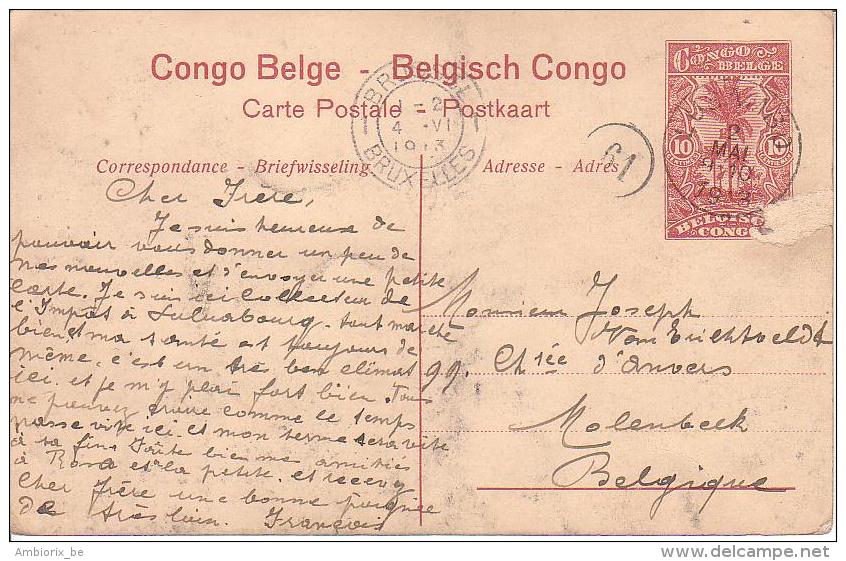 Congo Belge - Belgisch Congo
Carte Postale - Postkaart
Correspondance - Briefwisseling
Adresse - Adres
CONGO BELGE
10
10
BELGISCH
CONGO
BRUXELLES
1-2
4 VI
1913
BRUXELLES
61
2
MAI
1913
Cher Frère,
Je suis heureux de
pouvoir vous donner un peu de
nos nouvelles et d'envoyer une petite
carte. Je suis ici Collecteur de
l'Impôt à Luluabourg. tout marche
bien et ma santé est toujours de
même, c'est un très bon climat
ici. et je m'y plai fort bien. Tous
ne pouvez croire comme le temps
passe vite ici et mon terme sera vite
à sa fin. bien me amitiés
à Rosa et la petite. et recevez
Cher Frère une bonne poignée
de très loin. François
Monsieur Joseph
99. Chsée d'Anvers
Molenbeek
Belgique
Ambiorix_be
delcampe.net